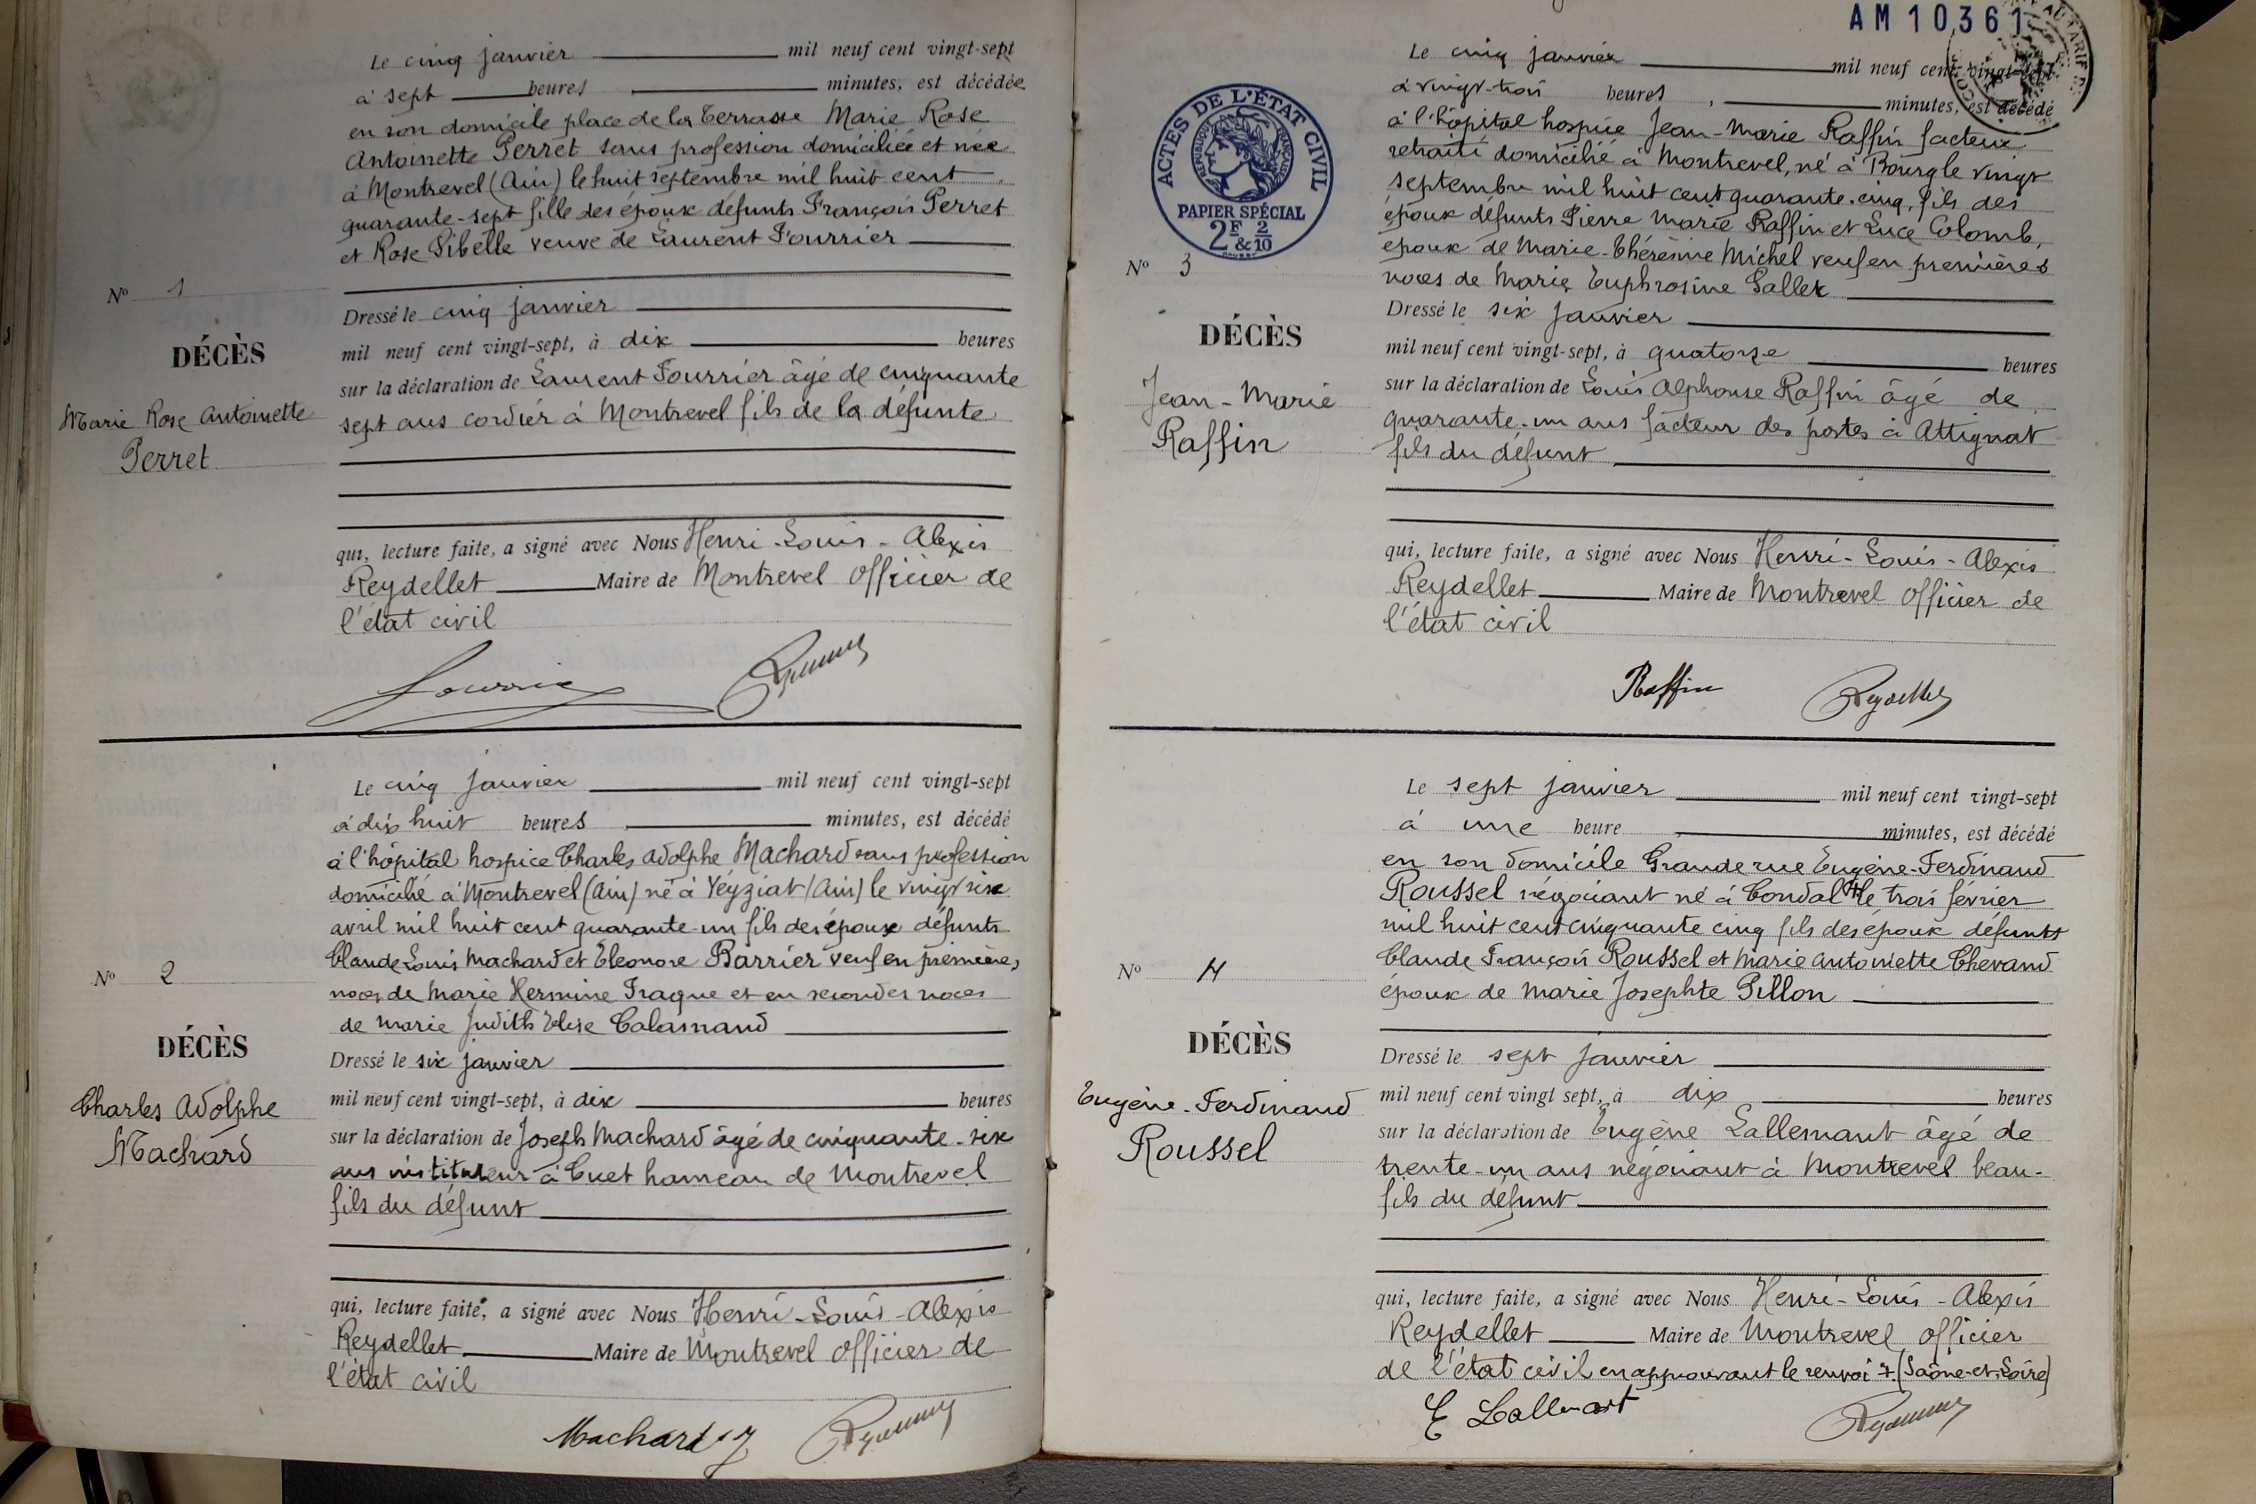 Le cinq janvier mil neuf cent vingt-sept
à sept heures minutes, est décédée
en son domicile place de la Terrasse Marie Rose
Antoinette Perret sans profession domiciliée et née
à Montrevel (Ain) le huit septembre mil huit cent
quarante-sept fille des époux défunts François Perret
et Rose Pibelle veuve de Laurent Fourrier
No 1
DÉCÈS
Marie Rose Antoinette
Perret
Dressé le cinq janvier
mil neuf cent vingt-sept, à dix heures
sur la déclaration de Laurent Fourrier âgé de cinquante
sept ans cordier à Montrevel fils de la défunte
qui, lecture faite, a signé avec Nous Henri-Louis-Alexis
Reydellet Maire de Montrevel officier de
l'état civil
Fourrier
Le cinq janvier mil neuf cent vingt-sept
à dix huit heures minutes, est décédé
à l'hôpital hospice Charles Adolphe Machard sans profession
domicilié à Montrevel (Ain) né à Veyziat (Ain) le vingt six
avril mil huit cent quarante-un fils des époux défunts
Claude Louis Machard et Eléonore Barrier veuf en premières
noces de Marie Hermine Fraque et en secondes noces
de Marie Judith Elise Calamand
No 2
DÉCÈS
Charles Adolphe
Machard
Dressé le six janvier
mil neuf cent vingt-sept, à dix heures
sur la déclaration de Joseph Machard âgé de cinquante-six
ans instituteur à Cuet hameau de Montrevel
fils du défunt
qui, lecture faite, a signé avec Nous Henri-Louis-Alexis
Reydellet Maire de Montrevel officier de
l'état civil
Machard J
AM 10361
ACTES DE L'ÉTAT CIVIL
RÉPUBLIQUE FRANÇAISE
PAPIER SPÉCIAL
2F & 2/10
Le cinq janvier mil neuf cent vingt-sept
à vingt-trois heures, minutes, est décédé
à l'hôpital hospice Jean-Marie Raffin facteur
retraité domicilié à Montrevel, né à Bourg le vingt
septembre mil huit cent quarante-cinq, fils des
époux défunts Pierre Marie Raffin et Luce Colomb,
époux de Marie-Thérésine Michel veuf en premières
noces de Marie Euphrosine Pallex
No 3
DÉCÈS
Jean-Marie
Raffin
Dressé le six janvier
mil neuf cent vingt-sept, à quatorze heures
sur la déclaration de Louis Alphonse Raffin âgé de
quarante-un ans facteur des postes à Attignat
fils du défunt
qui, lecture faite, a signé avec Nous Henri-Louis-Alexis
Reydellet Maire de Montrevel officier de
l'état civil
Raffin Reydellet
Le sept janvier mil neuf cent vingt-sept
à une heure minutes, est décédé
en son domicile Grande rue Eugène-Ferdinand
Roussel négociant né à Condal le trois février
mil huit cent cinquante cinq fils des époux défunts
Claude François Roussel et Marie Antoinette Chevand
époux de Marie Josephte Pillon
No 4
DÉCÈS
Eugène-Ferdinand
Roussel
Dressé le sept janvier
mil neuf cent vingt sept, à dix heures
sur la déclaration de Eugène Lallemant âgé de
trente-un ans négociant à Montrevel beau-
fils du défunt
qui, lecture faite, a signé avec Nous Henri-Louis-Alexis
Reydellet Maire de Montrevel officier
de l'état civil en approuvant le renvoi (Saône-et-Loire)
E Lallemant